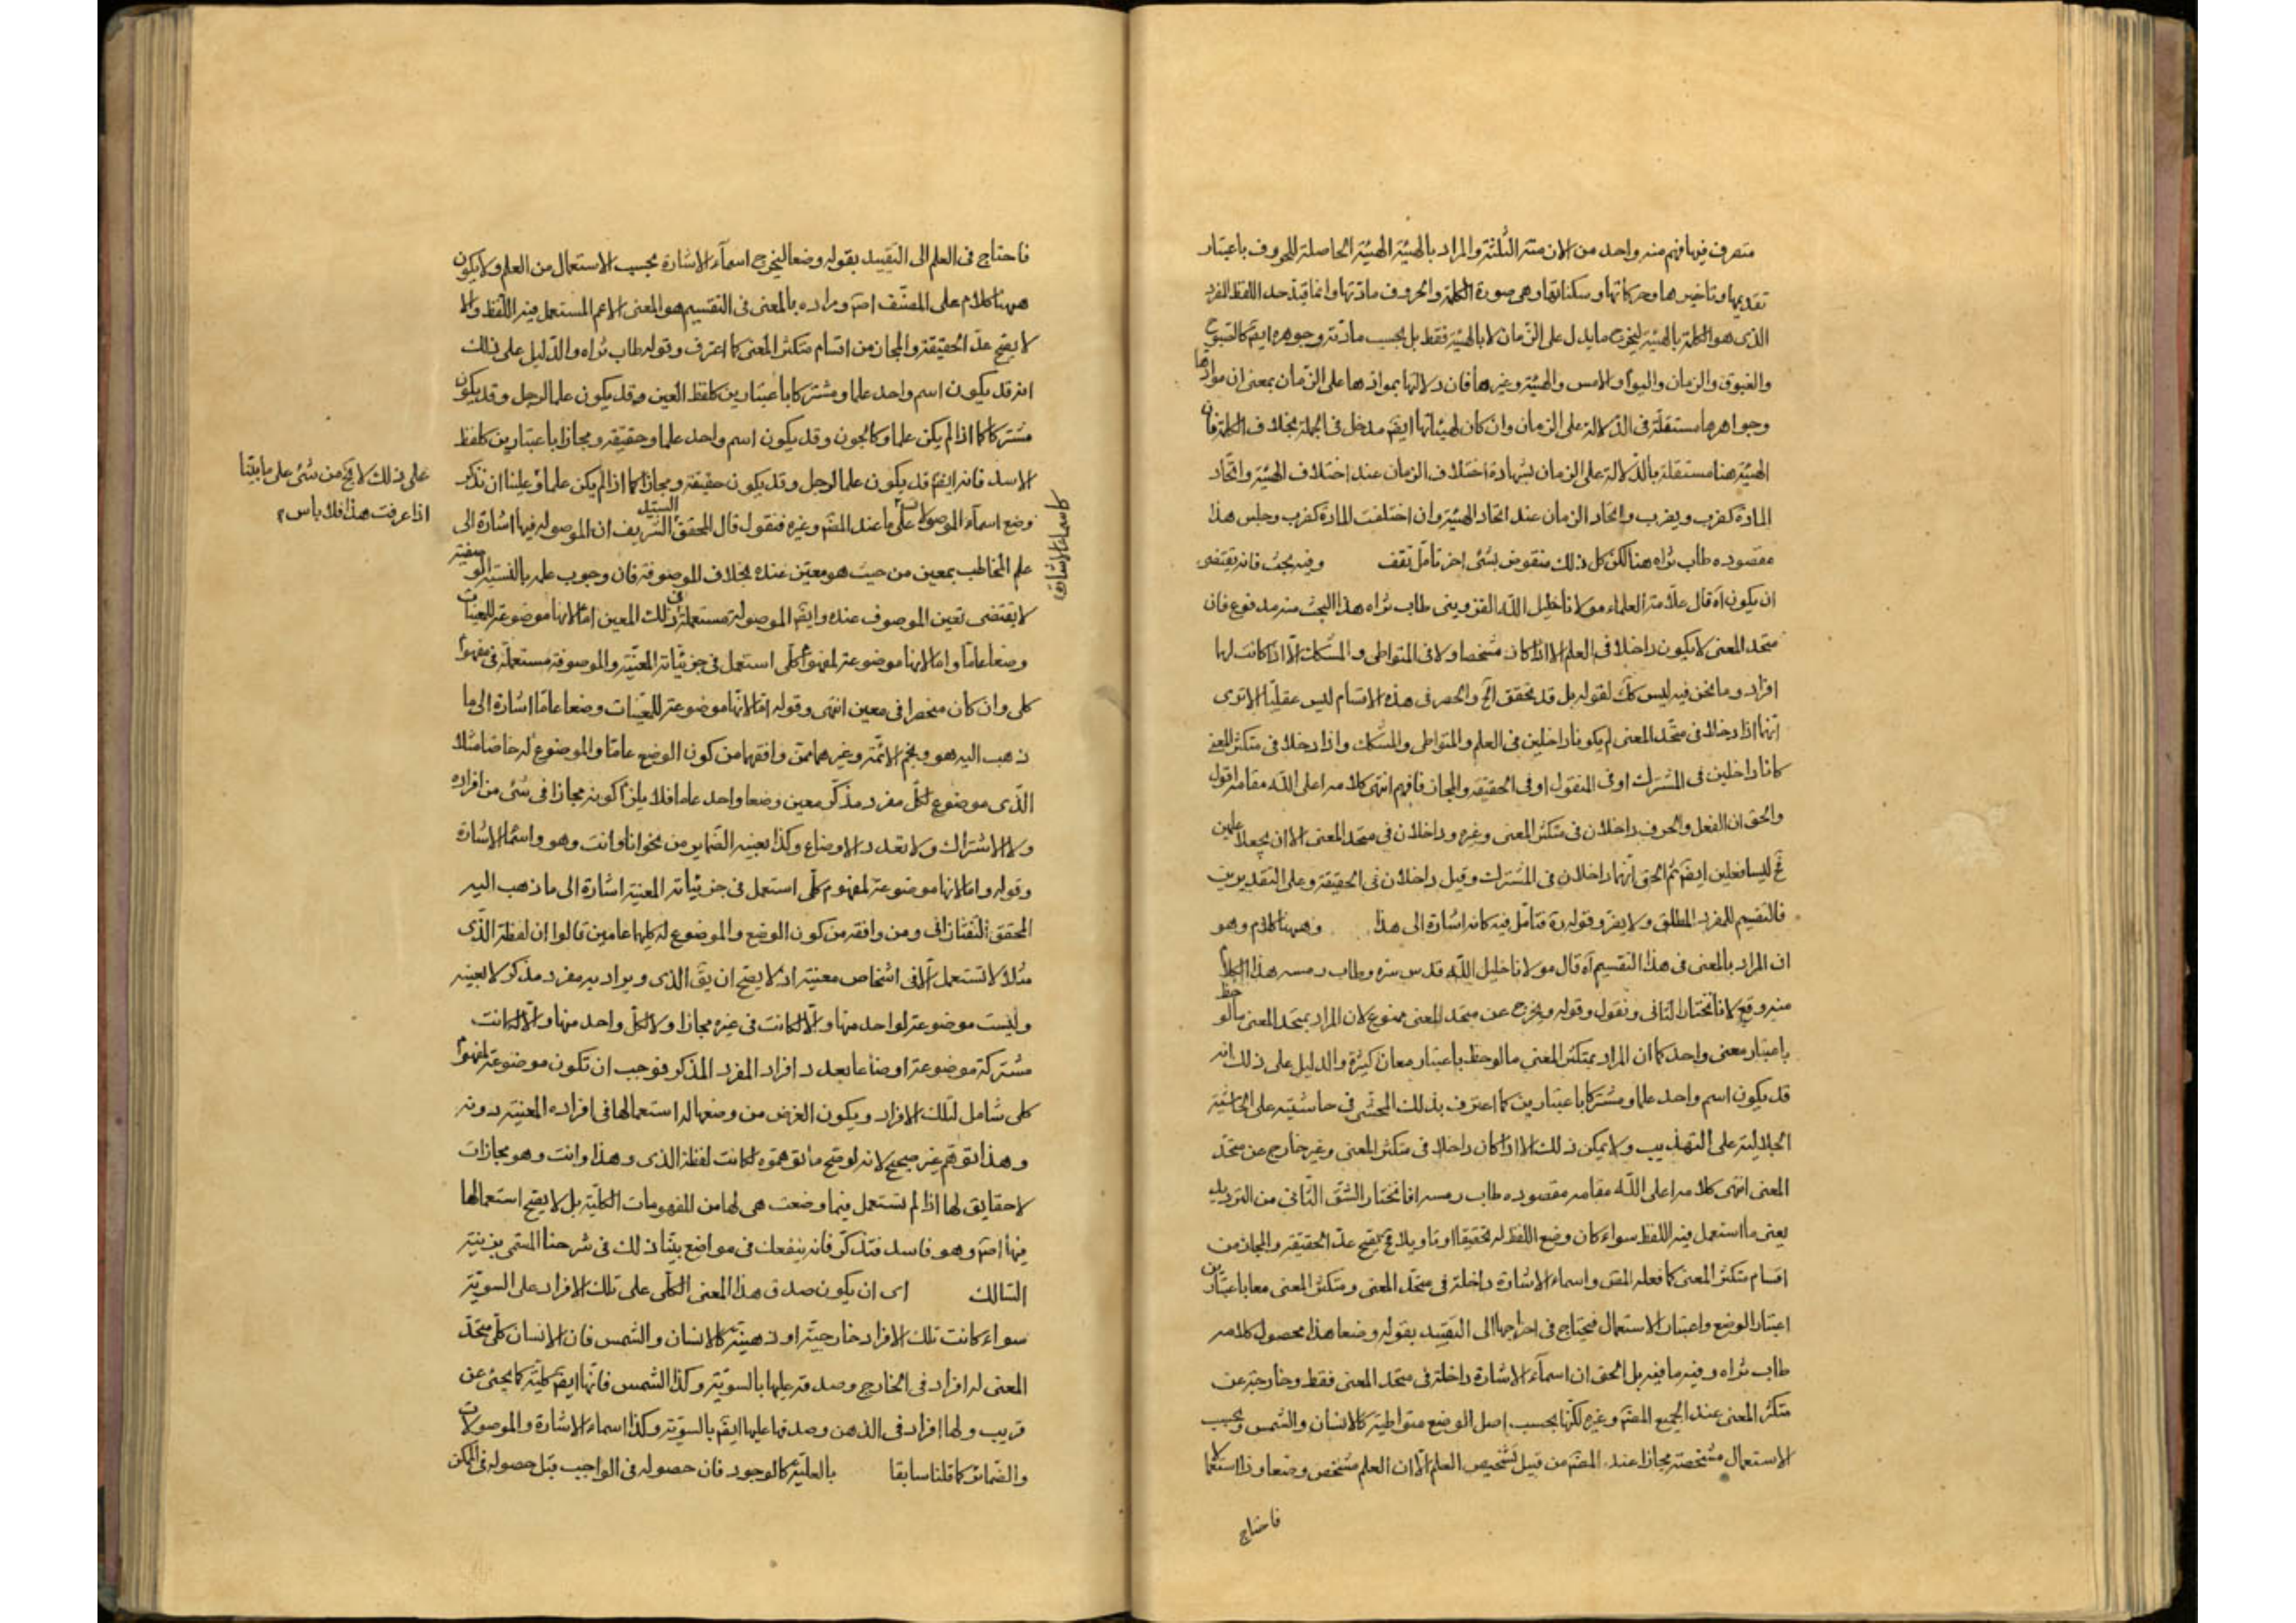 متصرف فيها فهم منه واحد من الازمنة الثلثة والمراد بالهيئة الهيئة الحاصلة للحروف باعتبار
تقديمها وتاخيرها وحركاتها وسكناتها وهى صورة الكلمة والحروف مادتها وانما قيد حد اللفظ المفرد
الذى هو الكلمة بالهيئة ليخرج ما يدل على الزمان لا بالهيئة فقط بل بحسب مادته وجوهره ايضا كالصبوح
والغبوق والزمان واليوم والامس والهيئة وغيرها فان دلالتها بموادها على الزمان بمعنى ان موادها
وجواهرها مستقلة فى الدلالة على الزمان وان كان لهيئاتها ايضم مدخل فى الجملة بخلاف الكلمة فان
الهيئة هنا مستقلة بالدلالة على الزمان بشهادة اختلاف الزمان عند اختلاف الهيئة واتحاد
المادة كضرب ويضرب واتحاد الزمان عند اتحاد الهيئة وان اختلفت المادة كضرب وجلس هذا
مقصوده طاب ثراه هنا لكن كل ذلك منقوض بشئ اخر تامل تقف وفيه بحث فانه يقتضى
ان يكون اه قال علامة العلماء مولانا خليل الله القزوينى طاب ثراه هذا البحث منه مدفوع فان
متحد المعنى لا يكون داخلا فى العلم الا اذا كان مشخصا ولا فى المتواطى والمشكك الا اذا كانت لها
افراد وما نحن فيه ليس كك لقوله بل قد تحقق الخ والحصر فى هذه الاقسام ليس عقليا الا ترى
انهما اذا دخلا فى متحد المعنى لم يكونا داخلين فى العلم والمتواطى والمشكك واذا دخلا فى متكثر المعنى
كانا داخلين فى المشترك او فى المنقول او فى الحقيقة والمجاز فافهم انتهى كلامه اعلى الله مقامه اقول
والحق ان الفعل والحرف داخلان فى متكثر المعنى وغيره وداخلان فى متحد المعنى الا ان يجعلا علمين
فح ليسا فعلين ايضم ثم الحق انهما داخلان فى المشترك وقيل داخلان فى الحقيقة وعلى التقديرين
فالتقسيم للمفرد المطلق ولا يضر وقوله ره فتامل فيه كانه اشارة الى هذا وههنا كلام وهو
ان المراد بالمعنى فى هذا التقسيم اه قال مولانا خليل الله قدس سره وطاب رمسه هذا الكلام
منه وقع لانا نختار الثانى ونقول وقوله ويخرج عن متحد المعنى ممنوع لان المراد بمتحد المعنى ما لوحظ
باعتبار معنى واحد كما ان المراد بمتكثر المعنى ما لوحظ باعتبار معان كثيرة والدليل على ذلك انه
قد يكون اسم واحد علما ومشتركا باعتبارين كما اعترف بذلك المحشى فى حاشيته على الحاشية
الجلالية على التهذيب ولا يمكن ذلك الا اذا كان داخلا فى متكثر المعنى وغير خارج عن متحد
المعنى انتهى كلامه اعلى الله مقامه مقصوده طاب رمسه انا نختار الشق الثانى من الترديد
يعنى ما استعمل فيه اللفظ سواء كان وضع اللفظ له تحقيقا او تاويلا فح يصح عد الحقيقة والمجاز من
اقسام متكثر المعنى كما فعله المص واسماء الاشارة داخلة فى متحد المعنى ومتكثر المعنى معا باعتبارين
اعتبار الوضع واعتبار الاستعمال فيحتاج فى اخراجها الى التقييد بقوله وضعا هذا محصول كلامه
طاب ثراه وفيه ما فيه بل الحق ان اسماء الاشارة داخلة فى متحد المعنى فقط وخارجة عن
متكثر المعنى عند الجميع المصم وغيره لكنها بحسب اصل الوضع متواطية كالانسان والشمس وبحسب
الاستعمال مشخصة مجازا عند المصم من قبيل تشخيص العلم الا ان العلم مشخص وضعا وذا استعمالا
فاحتاج
فاحتاج فى العلم الى التقييد بقوله وضعا ليخرج اسماء الاشارة بحسب الاستعمال من العلم ولا يكون
ههنا كلام على المصنف اصم ومراده بالمعنى فى التقسيم هو المعنى الاعم المستعمل فيه اللفظ والا
لا يصح عد الحقيقة والمجاز من اقسام متكثر المعنى كما اعترف وقوله طاب ثراه والدليل على ذلك
انه قد يكون اسم واحد علما ومشتركا باعتبارين كلفظ العين فقد يكون علما لرجل وقد يكون
مشتركا كما اذا لم يكن علما وكالجون وقد يكون اسم واحد علما وحقيقة ومجازا باعتبارين كلفظ
الاسد فانه ايضم قد يكون علما لرجل وقد يكون حقيقة ومجازا كما اذا لم يكن علما وعلينا ان نذكر
على ذلك لا يخ من شئ على ما بينا
اذا عرفت هذا فلا باس م
كاسماء الاشارة
وضع اسماء الموصولات على ما عند المصم وغيره فنقول قال المحقق السيد الشريف ان الموصولة فيها اشارة الى
علم المخاطب بمعين من حيث هو معين عنده بخلاف الموصوفة فان وجوب علمه بالنسبة الوصفية
لا يقتضى تعين الموصوف عنده وايضم الموصولة مستعملة فى ذلك المعين اما لانها موضوعة للمعينات
وضعا عاما واما لانها موضوعة لمفهوم كلى استعمل فى جزئياته المعينة والموصوفة مستعملة فى مفهوم
كلى وان كان منحصرا فى معين انتهى وقوله اما لانها موضوعة للمعينات وضعا عاما اشارة الى ما
ذهب اليه هو ونجم الائمة وغيرهما ممن وافقهما من كون الوضع عاما والموضوع له خاصا مثلا
الذى موضوع لكل مفرد مذكر معين وضعا واحد عاما فلا يلزم كونه مجازا فى شئ من افراده
ولا الاشتراك ولا تعدد الاوضاع وكذا بعينه الضماير من نحو انا وانت وهو واسماء الاشارة
وقوله واما لانها موضوعة لمفهوم كلى استعمل فى جزئياته المعينة اشارة الى ما ذهب اليه
المحقق التفتازانى ومن وافقه من كون الوضع والموضوع له كليهما عامين قالوا ان لفظة الذى
مثلا لا تستعمل الا فى اشخاص معينة اذ لا يصح ان يق الذى ويراد به مفرد مذكر لا بعينه
وليست موضوعة لواحد منها والا لكانت فى غيره مجازا ولا لكل واحد منها والا لكانت
مشتركة موضوعة اوضاعا بعدد افراد المفرد المذكر فوجب ان تكون موضوعة لمفهوم
كلى شامل لتلك الافراد ويكون الغرض من وضعها له استعمالها فى افراده المعينة دونه
وهذا توهم غير صحيح لانه لو صح ما توهموه لكانت لفظة الذى وهذا وانت وهو مجازات
لا حقايق لها اذ لم تستعمل فيما وضعت هى لها من المفهومات الكلية بل لا يصح استعمالها
فيها اصم وهو فاسد فتذكر فانه ينفعك فى مواضع بينا ذلك فى شرحنا المسمى بزينة
السالك اى ان يكون صدق هذا المعنى الكلى على تلك الافراد على السوية
سواء كانت تلك الافراد خارجية او ذهنية كالانسان والشمس فان الانسان كلى متحد
المعنى له افراد فى الخارج وصدقه عليها بالسوية وكذا الشمس فانها ايضم كلية كما يجئ عن
قريب ولها افراد فى الذهن وصدقها عليها ايضم بالسوية وكذا اسماء الاشارة والموصولات
والضمائر كما قلنا سابقا بالعلية كالوجود فان حصوله فى الواجب قبل حصوله فى الممكن